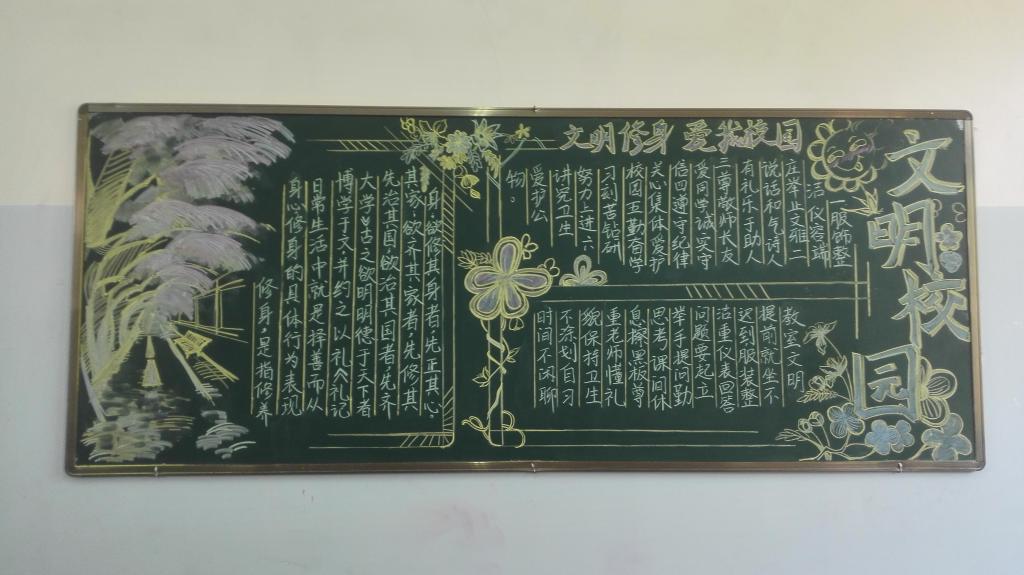 文明校园
文明修身 爱我校园
一服饰整
洁仪容端
庄举止文雅二
说话和气诗人
有礼乐于助人
三尊敬师长友
爱同学诚实守
信四遵守纪律
关心集体爱护
校园五勤奋学
习刻苦钻研
努力上进六
讲究卫生
爱护公
物。
教室文明
提前就坐不
迟到服装整
洁重仪表回答
问题要起立
举手提问勤
思考课间休
息擦黑板尊
重老师懂礼
貌保持卫生
不涂划自习
时间不闲聊
修身,是指修养
身心修身的具体行为表现
日常生活中就是择善而从
博学于文,并约之以礼《礼记
大学》古之欲明明德于天下者
先治其国,欲治其国者,先齐
其家,欲齐其家者,先修其
身,欲修其身者,先正其心